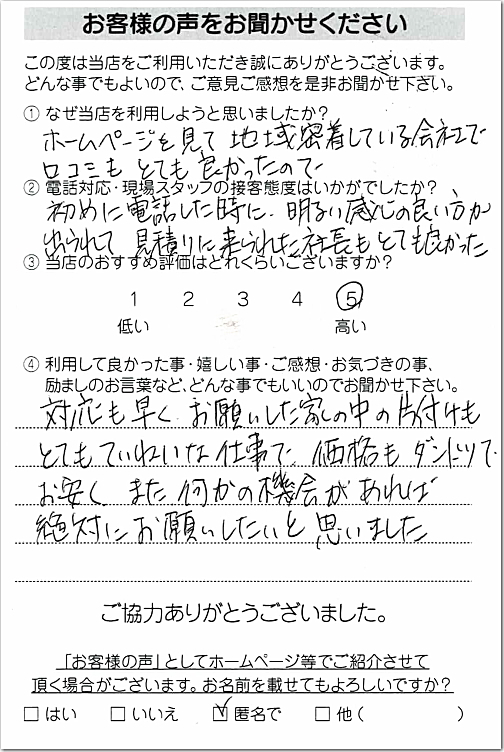 お客様の声をお聞かせください
この度は当店をご利用いただき誠にありがとうございます。
どんな事でもよいので、ご意見ご感想を是非お聞かせ下さい。
① なぜ当店を利用しようと思いましたか?
ホームページを見て 地域密着している会社で
口コミも とても 良かったので
② 電話対応・現場スタッフの接客態度はいかがでしたか?
初めに電話した時に、明るい感じの良い方が
出られて 見積りに来られた社長もとても良かった
③ 当店のおすすめ評価はどれくらいございますか?
1 2 3 4 5
低い 高い
④ 利用して良かった事・嬉しい事・ご感想・お気づきの事、
励ましのお言葉など、どんな事でもいいのでお聞かせ下さい。
対応も早く お願いした家の中の片付けも
とてもていねいな仕事で 価格もダントツで
お安く また 何かの機会があれば
絶対にお願いしたいと思いました
ご協力ありがとうございました。
「お客様の声」としてホームページ等でご紹介させて
頂く場合がございます。お名前を載せてもよろしいですか?
□ はい □ いいえ ☑ 匿名で □ 他( )